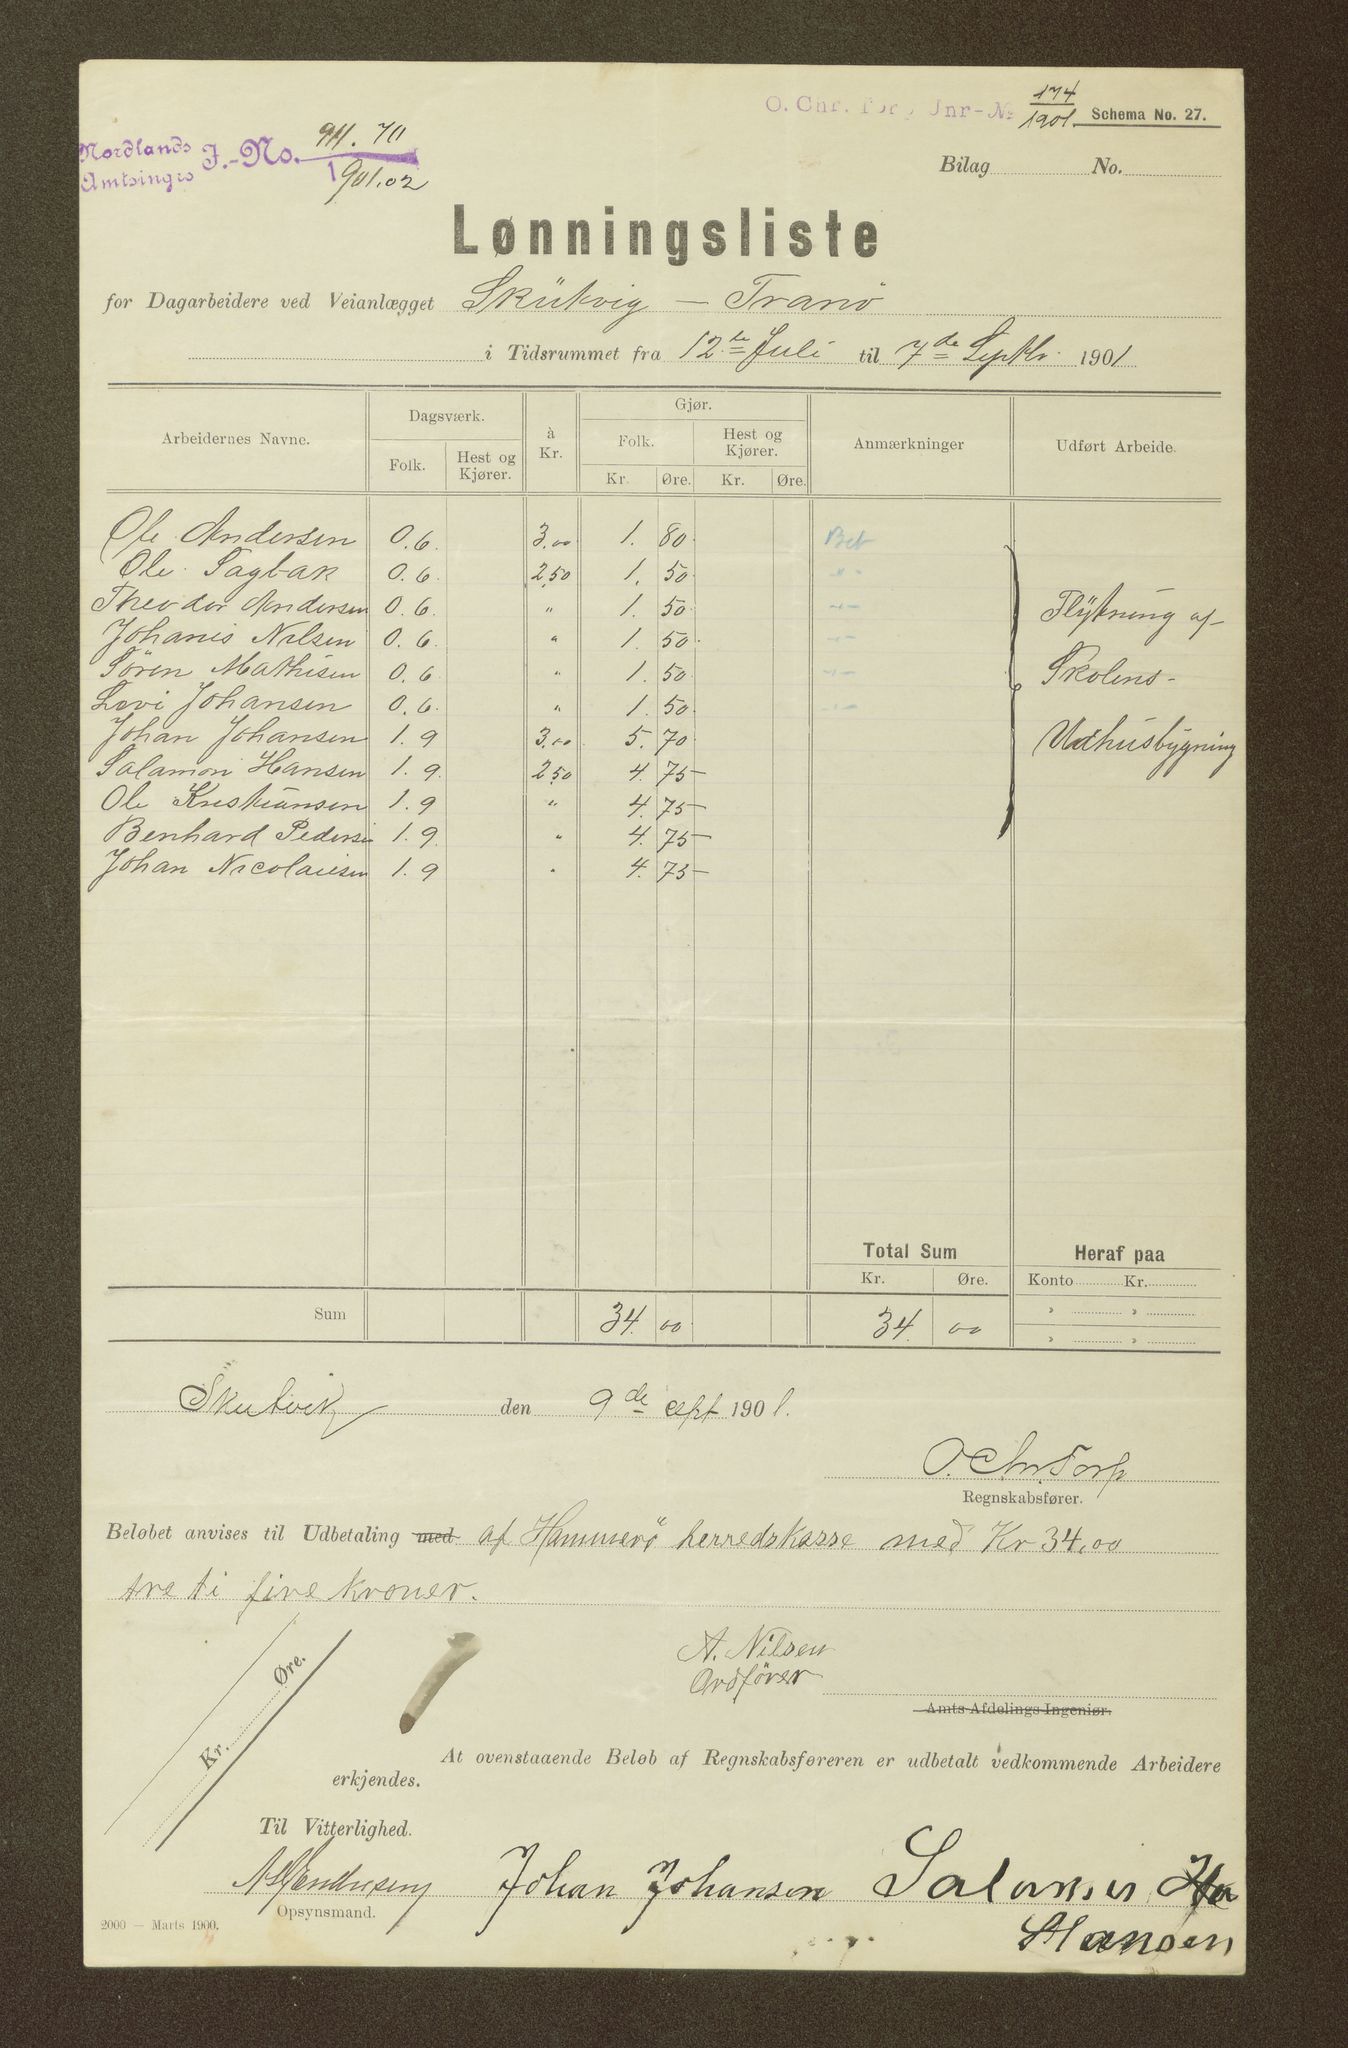 O. Chr. Torp Jnr-No 174/1901
Schema No. 27.
Nordlands Amtsingrs J.-No. 911.70/1901.02
Bilag No.
Lønningsliste
for Dagarbeidere ved Veianlægget Skütvig — Tranö
i Tidsrummet fra 12te Juli til 7de Septbr. 1901
Arbeidernes Navne. Dagsværk. à Kr. Gjør. Anmærkninger Udført Arbeide.
Folk. Hest og Kjører. Folk. Hest og Kjører.
Kr. Øre. Kr. Øre.
Ole Andersen 0.6. 3.00 1. 80. Bet
Ole Sagbak 0.6. 2.50 1. 50. " -
Theodor Andersen 0.6. " 1. 50. Flÿtning af
Johanis Nilsen 0.6. " 1. 50.
Sören Mathisen 0.6. " 1. 50. Skolens
Levi Johansen 0.6. " 1. 50.
Johan Johansen 1.9 3.00 5. 70. Udhusbÿgning
Salamon Hansen 1.9. 2.50 4. 75
Ole Kristiansen 1.9 " 4. 75
Benhard Pedersen 1.9. " 4. 75
Johan Nicolaisen 1.9 " 4. 75
Total Sum Heraf paa
Kr. Øre. Konto Kr.
Sum 34. 00 34. 00 " "
" "
Skutvik den 9de sept 1901.
O. Chr. Torp
Regnskabsfører.
Beløbet anvises til Udbetaling med af Hammerö herredskasse med Kr 34.00
treti fire kroner.
Kr. Øre.
A. Nilsen
Ordförer
Amts-Afdelings Ingeniør.
At ovenstaaende Beløb af Regnskabsføreren er udbetalt vedkommende Arbeidere
erkjendes.
Til Vitterlighed.
Johan Johansen Salamon Ha
Opsynsmand.
Hansen
2000 — Marts 1900.